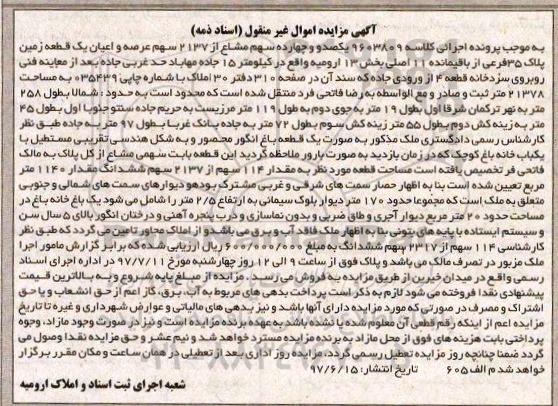 آگهی مزایده اموال غیر منقول (اسناد ذمه)
به موجب پرونده اجرائی کلاسه ۹۶۰۳۸۰۹ یکصدو و چهارده سهم مشاع از ۲۱۳۷ سهم عرصه و اعیان یک قطعه زمین
پلاک ۳۵فرعی از باقیمانده ۱۱ اصلی بخش ۱۳ ارومیه واقع در کیلومتر ۱۵ جاده مهاباد حد غربی جاده بعد از معاینه فنی
روبروی سردخانه قطعه ۴ از ورودی جاده که سند آن در صفحه ۳۱۰ دفتر ۳۰ املاک با شماره چاپی ۰۳۵۴۳۹ به مساحت
۲۱۳۷۸ متر ثبت و صادر و مع الواسطه به رضا فاتحی فرد منتقل شده است که محدود است به حدود: شمالا بطول ۲۵۸
متر به نهر ترکمان شرقا اول بطول ۱۹ متر به جوی دوم به طول ۱۱۹ متر مرزیست به حریم جاده سنتو جنوبا اول بطول ۴۵
متر به زمینه کش دوم بطول ۵۵ متر زمینه کش سوم بطول ۷۲ متر به جاده بانک غربا بطول ۹۷ متر به جاده طبق نظر
کارشناس رسمی دادگستری ملک مذکور به صورت یک قطعه باغ انگور محصور و به شکل هندسی تقریبی مستطیل با
یکباب خانه باغ کوچک که در زمان بازدید به صورت بارور ملاحظه گردید این قطعه بابت سهمی مشاع از کل پلاک به مالک
فاتحی فر تخصیص یافته است مساحت قطعه مورد نظر به مقدار ۱۱۴ سهم از ۲۱۳۷ سهم ششدانگ مقدار ۱۱۴۰ متر
مربع تعیین شده است بنا به اظهار حصار سمت های شرقی و غربی مشترک بودهو دیوارهای سمت های شمالی و جنوبی
متعلق به ملک است که مجموعا حدود ۱۷۰ متر دیوار بلوک سیمانی به ارتفاع ۲/۵ متر را شامل می شود یک باغ خانه باغ در
مساحت حدود ۲۰ متر مربع دیوار آجری و طاق ضربی و بدون نماسازی و درب پنجره آهنی و درختان انگور بالای ۵ سال سن
و سیستم ایستاده با پایه های بتونی بنا به اظهار ملک فاقد آب و برق می باشد و از املاک مجاور تامین می گردد که طبق نظر
کارشناسی ۱۱۴ سهم از ۲۳۱۷ سهم ششدانگ به مبلغ ۶۰۰/۰۰۰/۰۰۰ ریال ارزیابی شده که برابر گزارش مامور اجرا
ملک مزبور در تصرف مالک می باشد و پلاک فوق از ساعت ۹ الی ۱۲ روز چهارشنبه مورخ ۹۷/۷/۱۱ در اداره اجرای اسناد
رسمی واقع در میدان خیرین از طریق مزایده به فروش می رسد. مزایده از مبلغ پایه شروع و به بالاترین قیمت
پیشنهادی نقدا فروخته می شود لازم به ذکر است پرداخت بدهی های مربوط به آب، برق، گاز اعم از حق انشعاب و یا حق
اشتراک و مصرف در صورتی که مورد مزایده دارای آنها باشد و نیز بدهی های مالیاتی و عوارض شهرداری و غیره تا تاریخ
مزایده اعم از اینکه رقم قطعی آن معلوم شده یا نشده باشد به عهده برنده مزایده است و نیز در صورت وجود مازاد، وجوه
پرداختی بابت هزینه های فوق از محل مازاد به برنده مزایده مسترد خواهد شد و نیم عشر و حق مزایده نقدا وصول می
گردد ضمنا چنانچه روز مزایده تعطیل رسمی گردد، مزایده روز اداری بعد از تعطیلی در همان ساعت و مکان مقرر برگزار
خواهد شد م الف ۶۰۵ تاریخ انتشار: ۹۷/۶/۱۵
شعبه اجرای ثبت اسناد و املاک ارومیه